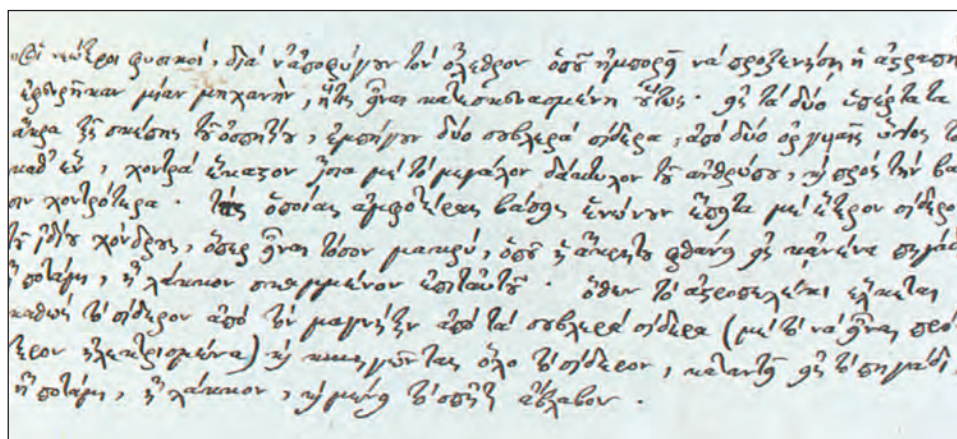 Οἱ νεώτεροι φυσικοί, διὰ ν' ἀποφύγουν τὸν ὄλεθρον ὁποῦ ἠμπορεῖ νὰ προξενήσῃ ἡ ἀστραπὴ
ἐφευρῆκαν μίαν μηχανήν, ἥτις εἶναι κατεσκευασμένη οὕτως· εἰς τὰ δύο ὑπέρτατα
ἄκρα τῆς σκέπης τοῦ ὁσπητίου, ἐμπήγουν δύο σουβλερὰ σίδερα, ἀπὸ δύο ὀργυιαῖς ὕψος τὸ
καθ' ἕν, χοντρὰ ἕκαστον ἴσια μὲ τὸ μεγάλον δάκτυλον τοῦ ἀνθρώπου, καὶ πρὸς τὴν βά
σιν χοντρότερα. τὰς ὁποίας ἀμφοτέρας βάσεις ἑνώνουν ἔπειτα μὲ ἕτερον σίδερο
τοῦ ἰδίου χόνδρους, ὅπερ εἶναι τόσον μακρύ, ὁποῦ ἡ ἄκρη του φθάνει εἰς κανένα πηγάδ
ἢ ποτάμι, ἢ λάκκον σκαμμένον ἐπὶ ταὐτοῦ. ὅθεν τὸ ἀστροπελέκι ἕλκεται
καθὼς τὸ σίδερον ἀπὸ τὸν μαγνήτην ἀπὸ τὰ σουβλερὰ σίδερα (μὲ τὸ νὰ εἶναι πρό
τερον ἠλεκτρισμένα) καὶ κυνηγῶντας ὅλο τὸ σίδερον, καταντᾷ εἰς τὸ πηγάδι,
ἢ ποτάμι, ἢ λάκκον, καὶ μένει τὸ σπήτι ἄβλαβον.